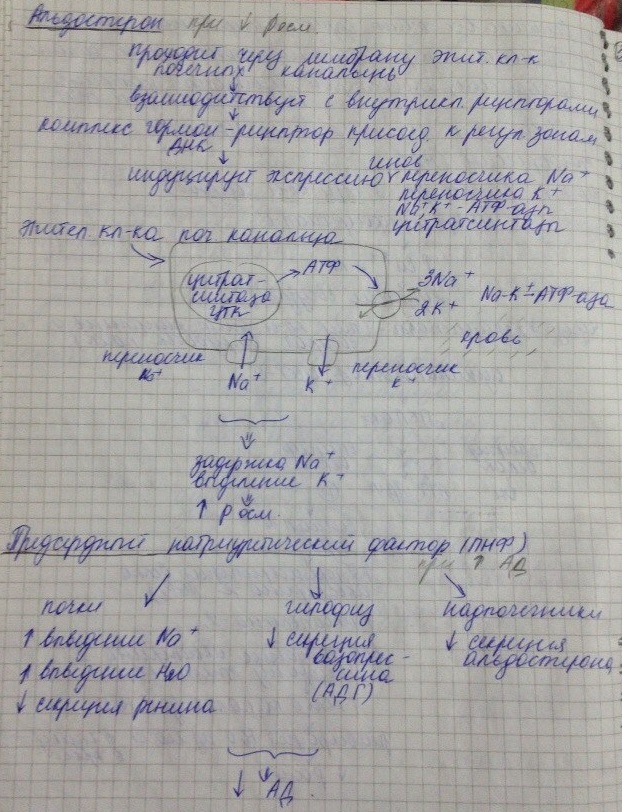 Альдостерон при ↓ Pосм.
проходит через мембрану эпит. кл-к
почечных канальц
взаимодействует с внутрикл. рецепторами
комплекс гормон-рецептор присоед. к регул. зонам
ДНК
индуцирует экспрессию генов переносчика Na⁺
переносчика K⁺
Na⁺K⁺-АТФ-азы
цитратсинтазы
Эпител. кл-ка поч. канальца
цитрат-
синтаза
ЦТК
АТФ
3Na⁺
2K⁺
Na-K⁺-АТФ-аза
кровь
переносчик
Na⁺
Na⁺
K⁺
переносчик
K⁺
задержка Na⁺
выделение K⁺
↑ Pосм.
Предсердный натриуретический фактор (ПНФ)
при ↑ АД
почки
↑ выведение Na⁺
↑ выведение H₂O
↓ секреция ренина
гипофиз
↓ секреция
вазопрес-
сина
(АДГ)
надпочечники
↓ секреция
альдостерона
↓ АД